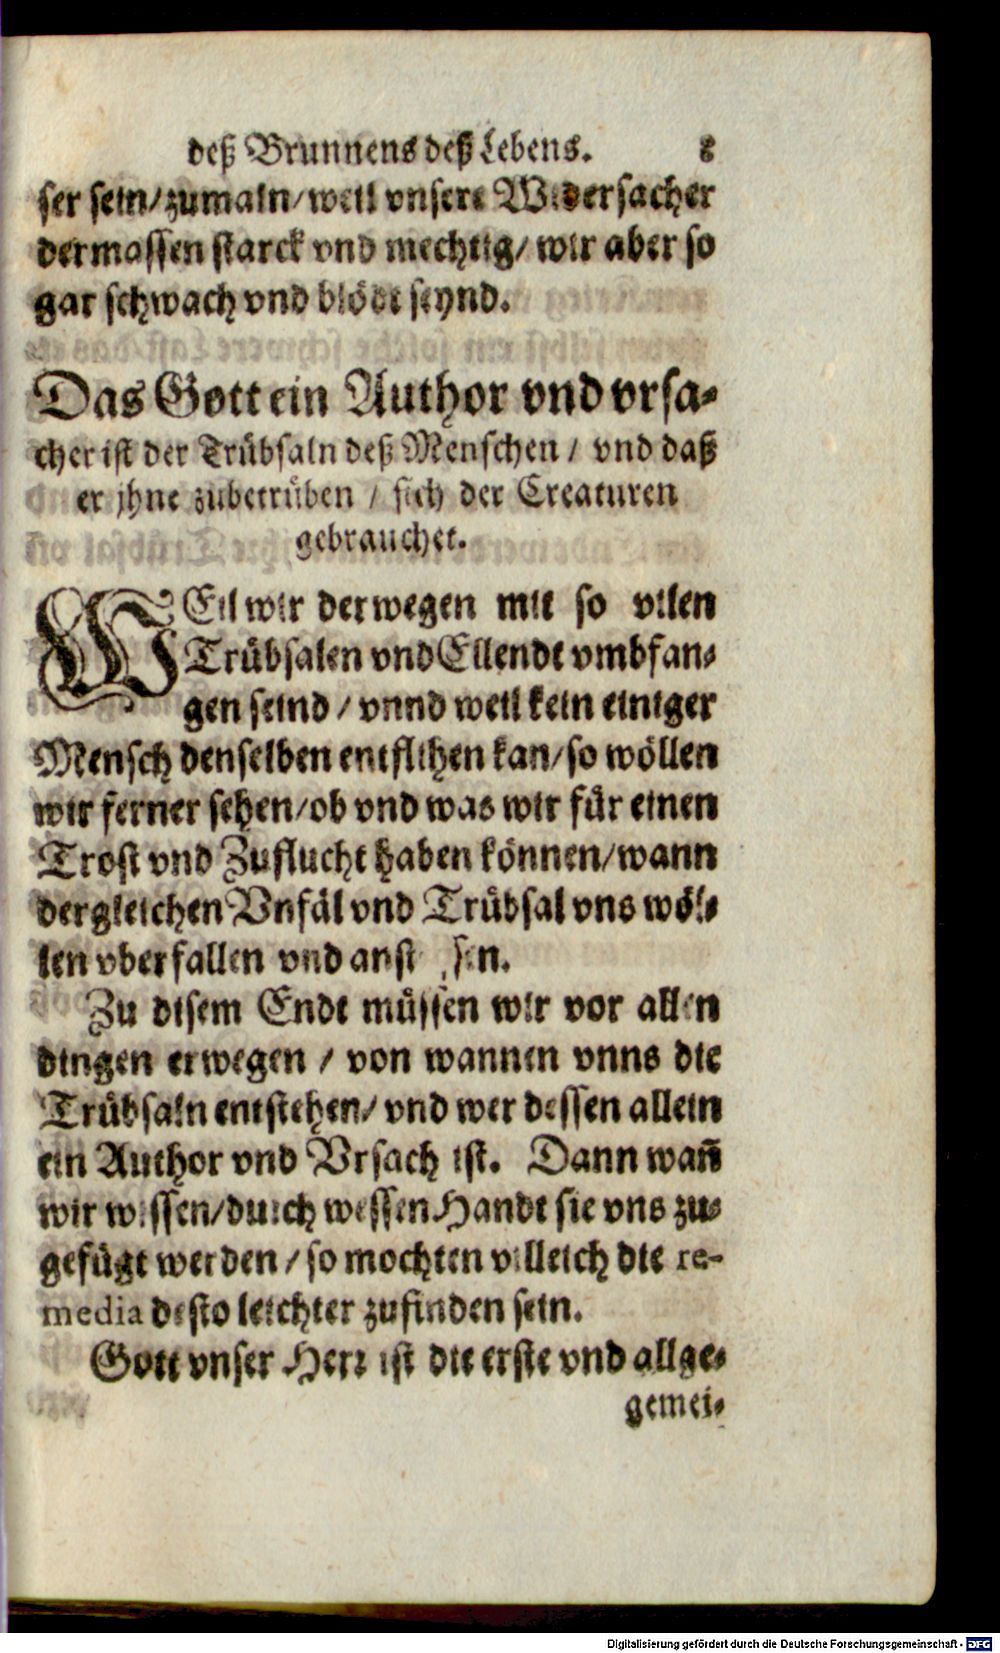 deß Brunnens deß Lebens. 8
ser sein/zumaln/weil vnsere Widersacher
dermassen starck vnd mechtig/ wir aber so
gar schwach vnd blöde seynd.
Das Gott ein Author vnd vrsa-
cher ist der Trübsaln deß Menschen / vnd daß
er jhne zubetrüben / sich der Creaturen
gebrauchet.
WEil wir derwegen mit so vilen
Trübsalen vnd Ellende vmbfan-
gen seind / vnnd weil kein einiger
Mensch denselben entflihen kan/so wöllen
wir ferner sehen/ob vnd was wir für einen
Trost vnd Zuflucht haben können/wann
dergleichen Vnfäl vnd Trübsal vns wöl-
len vberfallen vnd
Zu disem Ende müssen wir vor allen
dingen erwegen / von wannen vnns die
Trübsaln entstehen/ vnd wer dessen allein
ein Author vnd Vrsach ist. Dann wañ
wir wissen/durch wessen Hande sie vns zu-
gefügt werden / so mochten villeich die re-
media desto leichter zufinden sein.
Gott vnser Herr ist die erste vnd allge-
gemei-
Digitalisierung gefördert durch die Deutsche Forschungsgemeinschaft - DFG